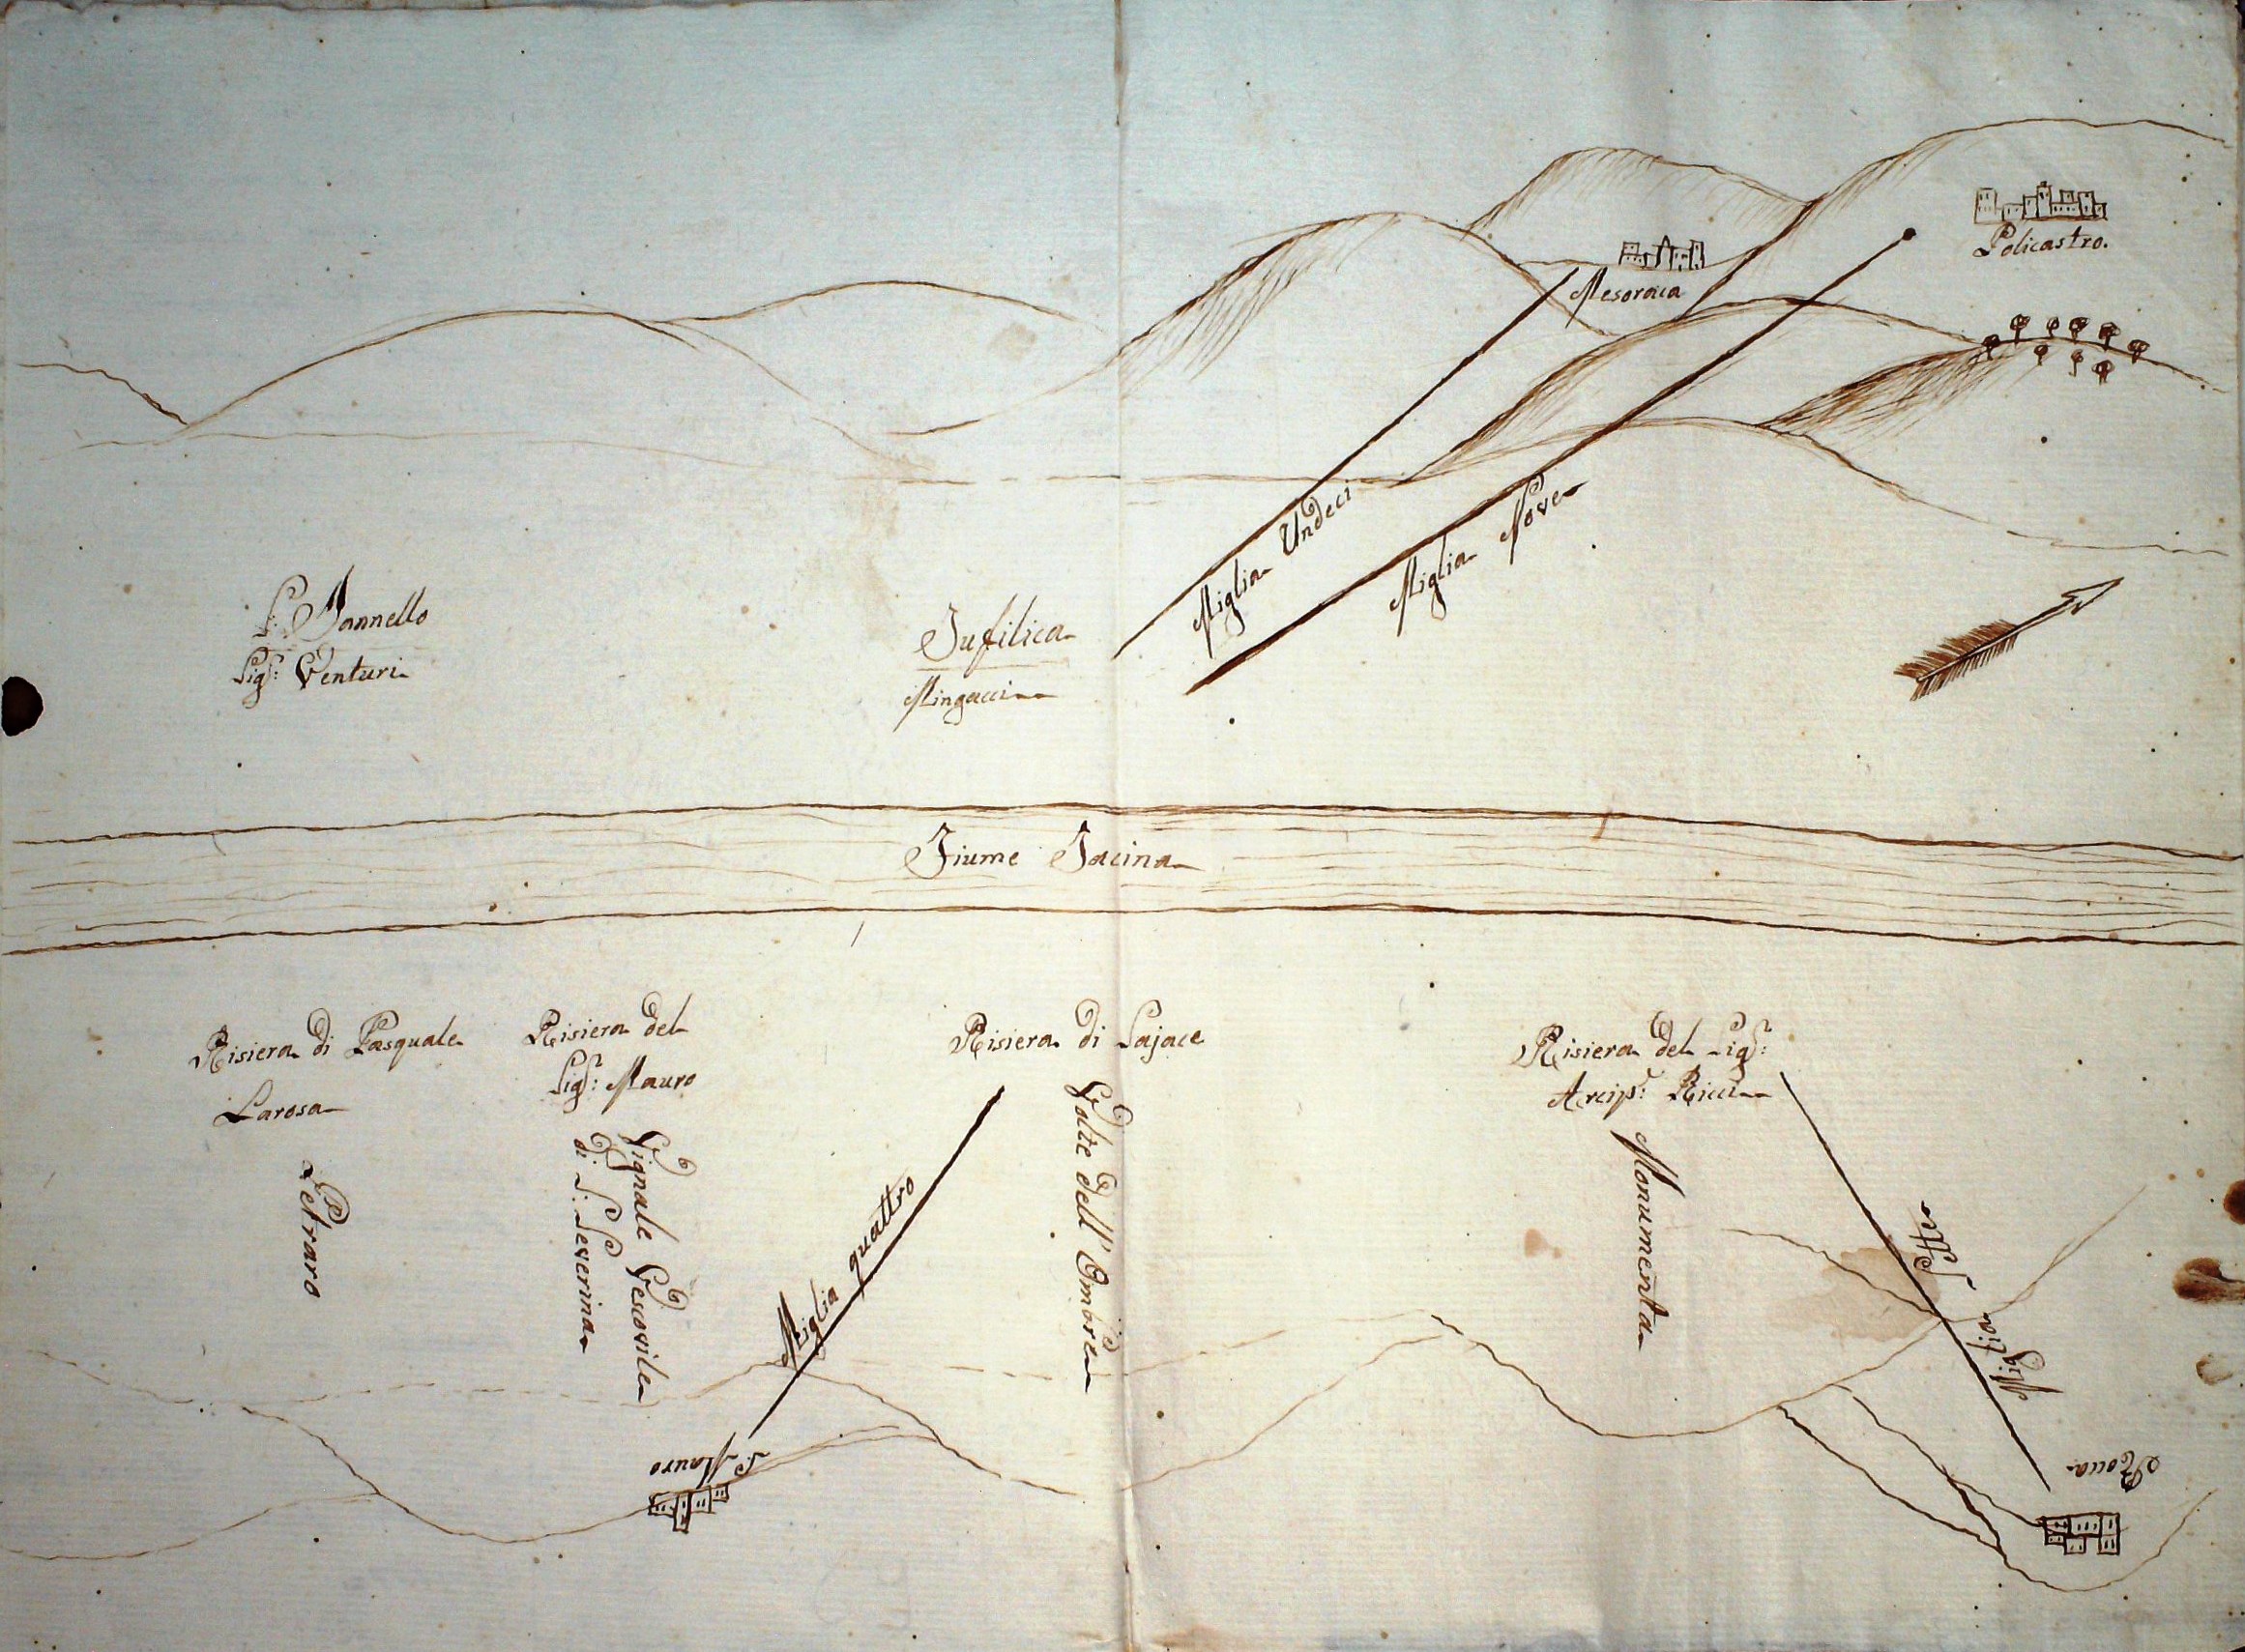 Policastro.
Mesoraca
Miglia Undeci
Miglia Nove
S. Iannello
Sig.r: Venturi
Iufilica
Mingacci
Fiume Tacina
Risiera di Pasquale
Larosa
Petraro
Risiera del
Sig.r: Mauro
Vignale Vescovile
di S: Severina
Miglia quattro
S. Mauro
Risiera di Sajace
Volte dell'Ombre
Risiera del Sig.r:
Arcip.e: Ricci
Monumenta
Miglia Sette
Rocca